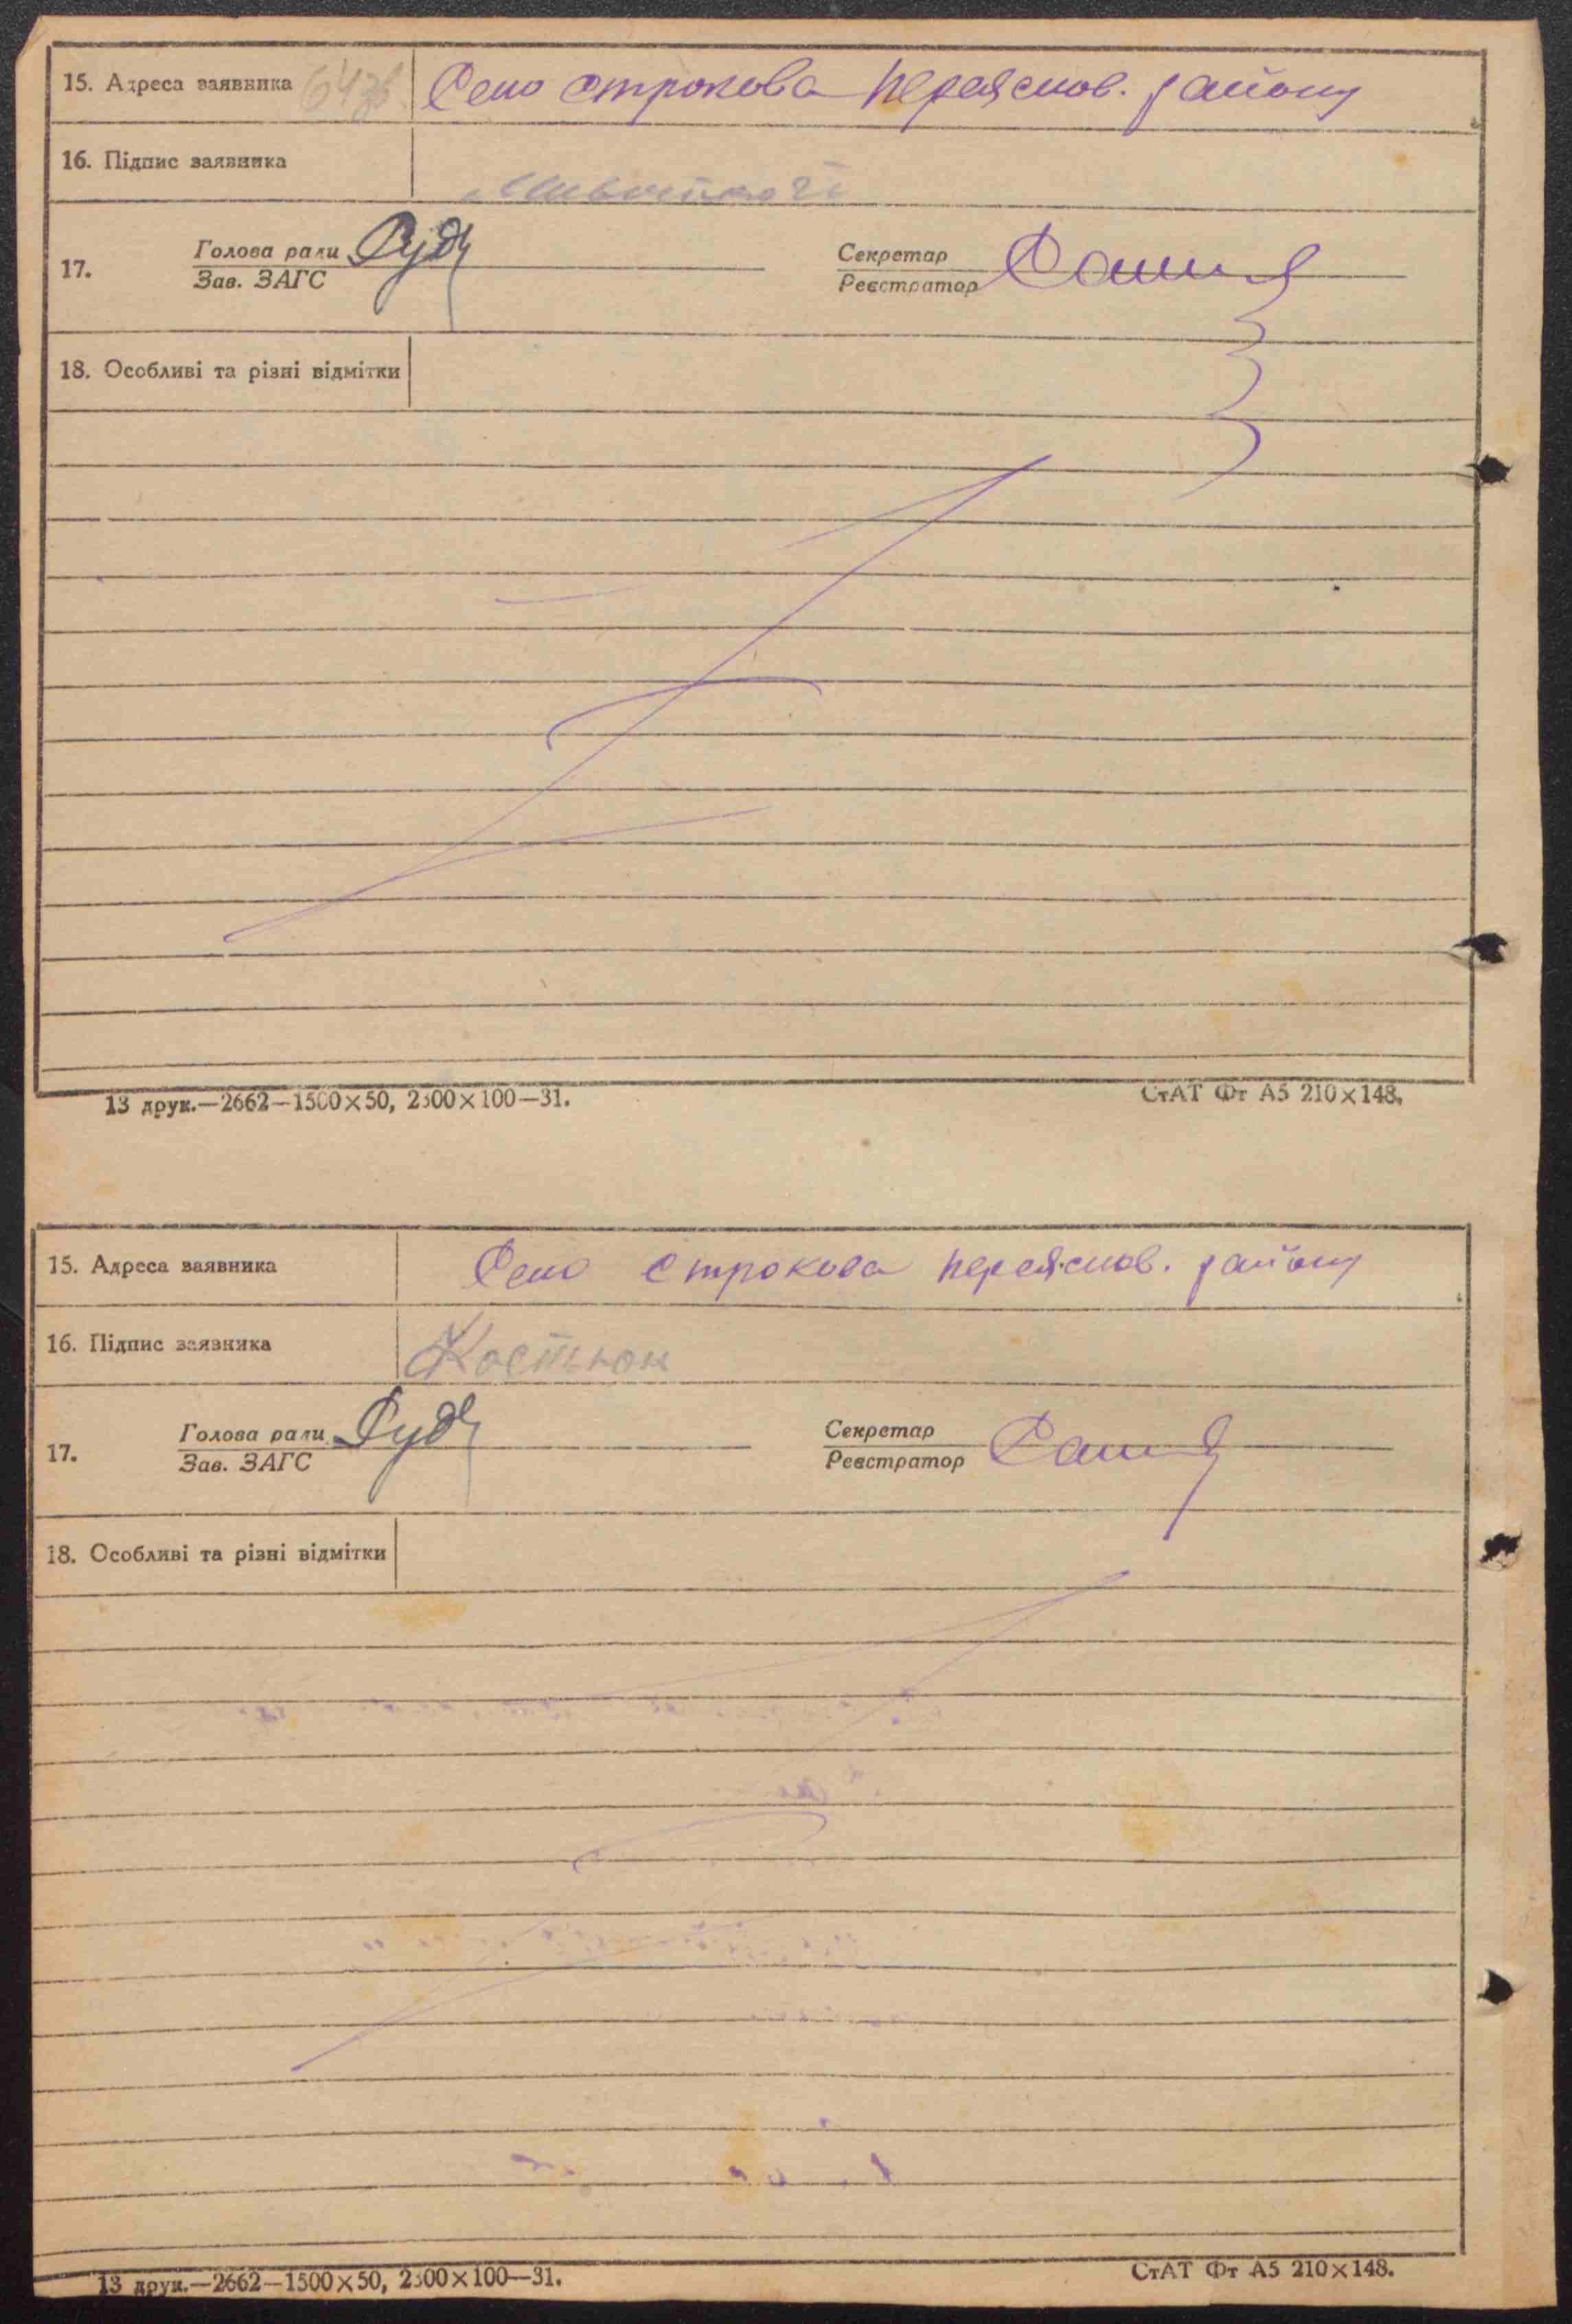 15. Адреса заявника Село Строкова переяслов. району
16. Підпис заявника
17. Голова ради Секретар
Зав. ЗАГС Реєстратор
18. Особливі та різні відмітки
13 друк.—2662—1500×50, 2300×100—31. СтАТ Фт А5 210×148.
15. Адреса заявника Село Строкова переяслов. району
16. Підпис заявника Костюк
17. Голова ради Секретар
Зав. ЗАГС Реєстратор
18. Особливі та різні відмітки
13 друк.—2662—1500×50, 2300×100—31. СтАТ Фт А5 210×148.